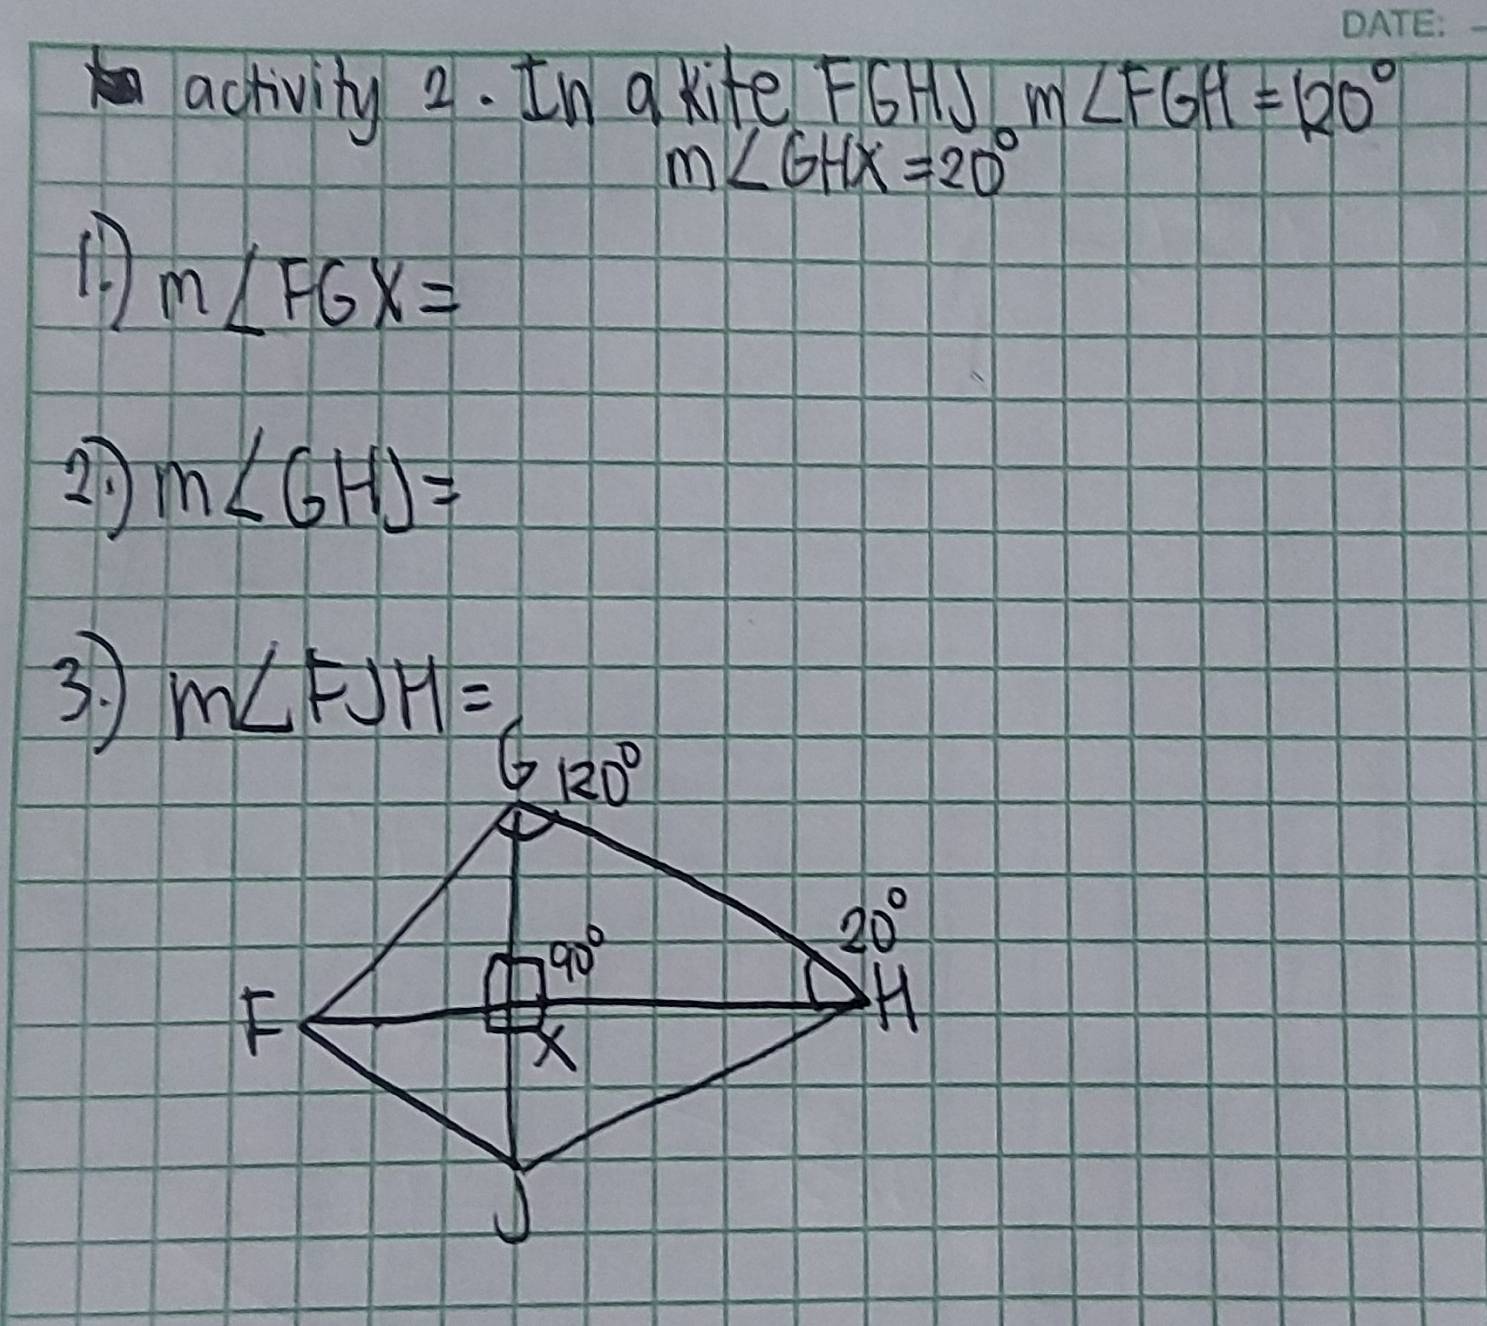 DATE:
activity 2. In a kite FGHJ m∠FGH = 120°
m∠GHX = 20°
1.) m∠FGX =
2.) m∠GHJ =
3.) m∠FJH =
G 120°
20°
90°
F H
X
J